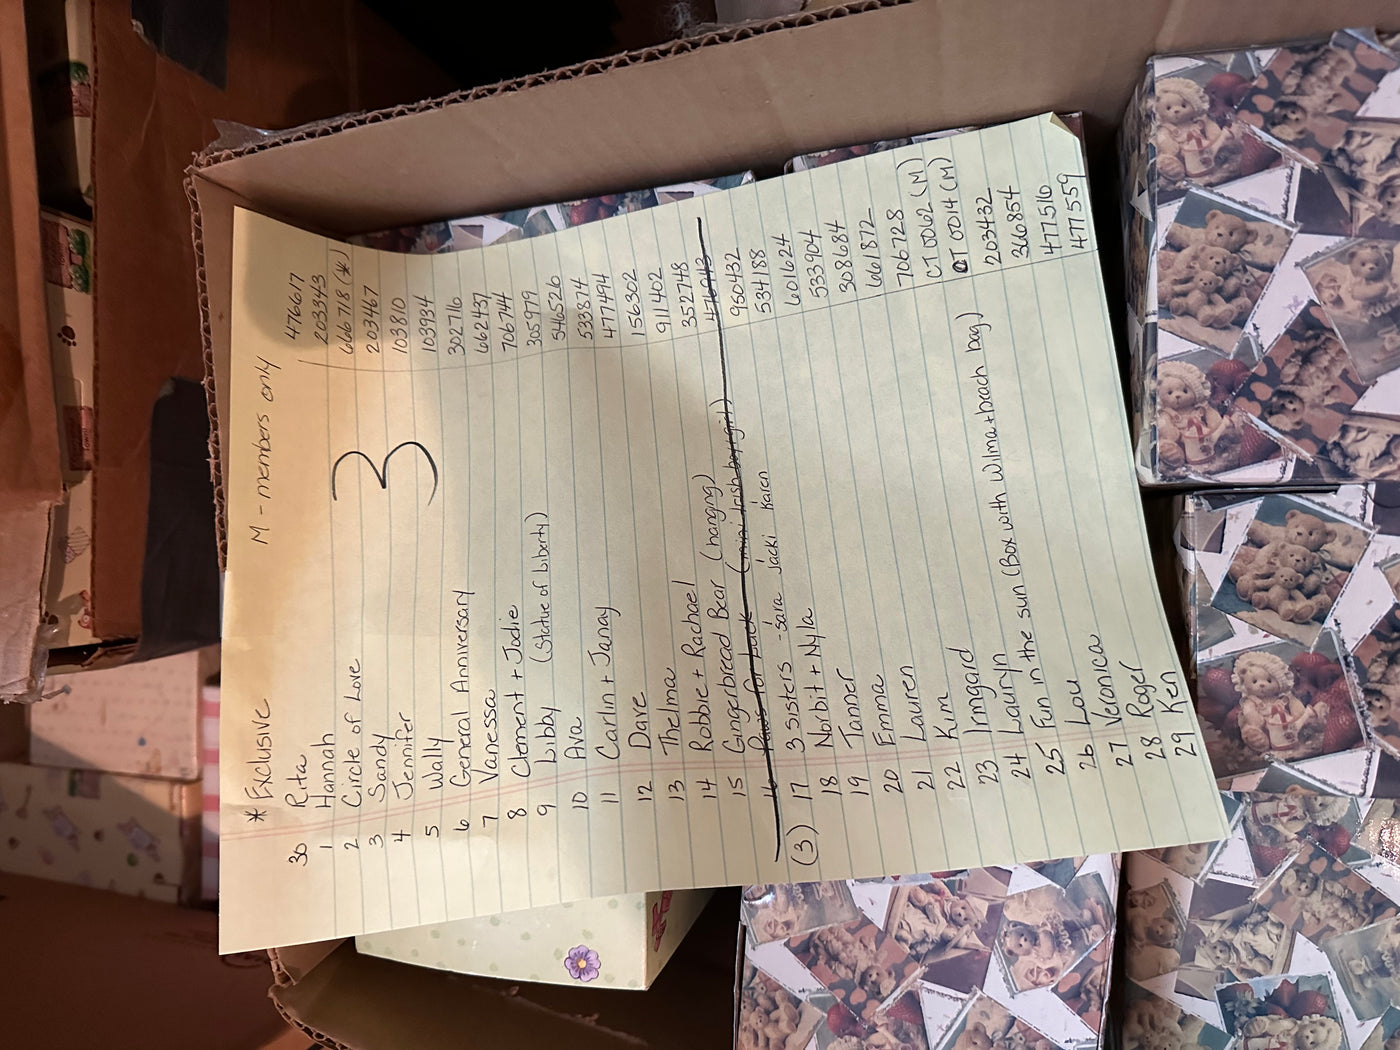 * Exclusive M - members only
30 Rita 476617
1 Hannah 203343
2 Circle of Love 666718 (*)
3 Sandy 203467
4 Jennifer 103810
3
5 Wally 103934
6 General Anniversary 302716
7 Vanessa 662437
8 Clement + Jodie 706744
9 Libby (Statue of Liberty) 305979
10 Ava 546526
11 Carlin + Janay 533874
12 Dave 477494
13 Thelma 156302
14 Robbie + Rachael 911402
15 Gingerbread Bear (hanging) 352748
16 Paws for Luck (mini Irish boy+girl) 476043
(3) 17 3 Sisters - Sara Jacki Karen 950432
18 Norbit + Nyla 534188
19 Tanner 601624
20 Emma 533904
21 Lauren 308684
22 Kim 661872
23 Irmgard 706728
24 Lauryn CT0062 (M)
25 Fun in the sun (Box with Wilma + beach bag) CT0014 (M)
26 Lou 203432
27 Veronica 366854
28 Roger 477516
29 Ken 477559